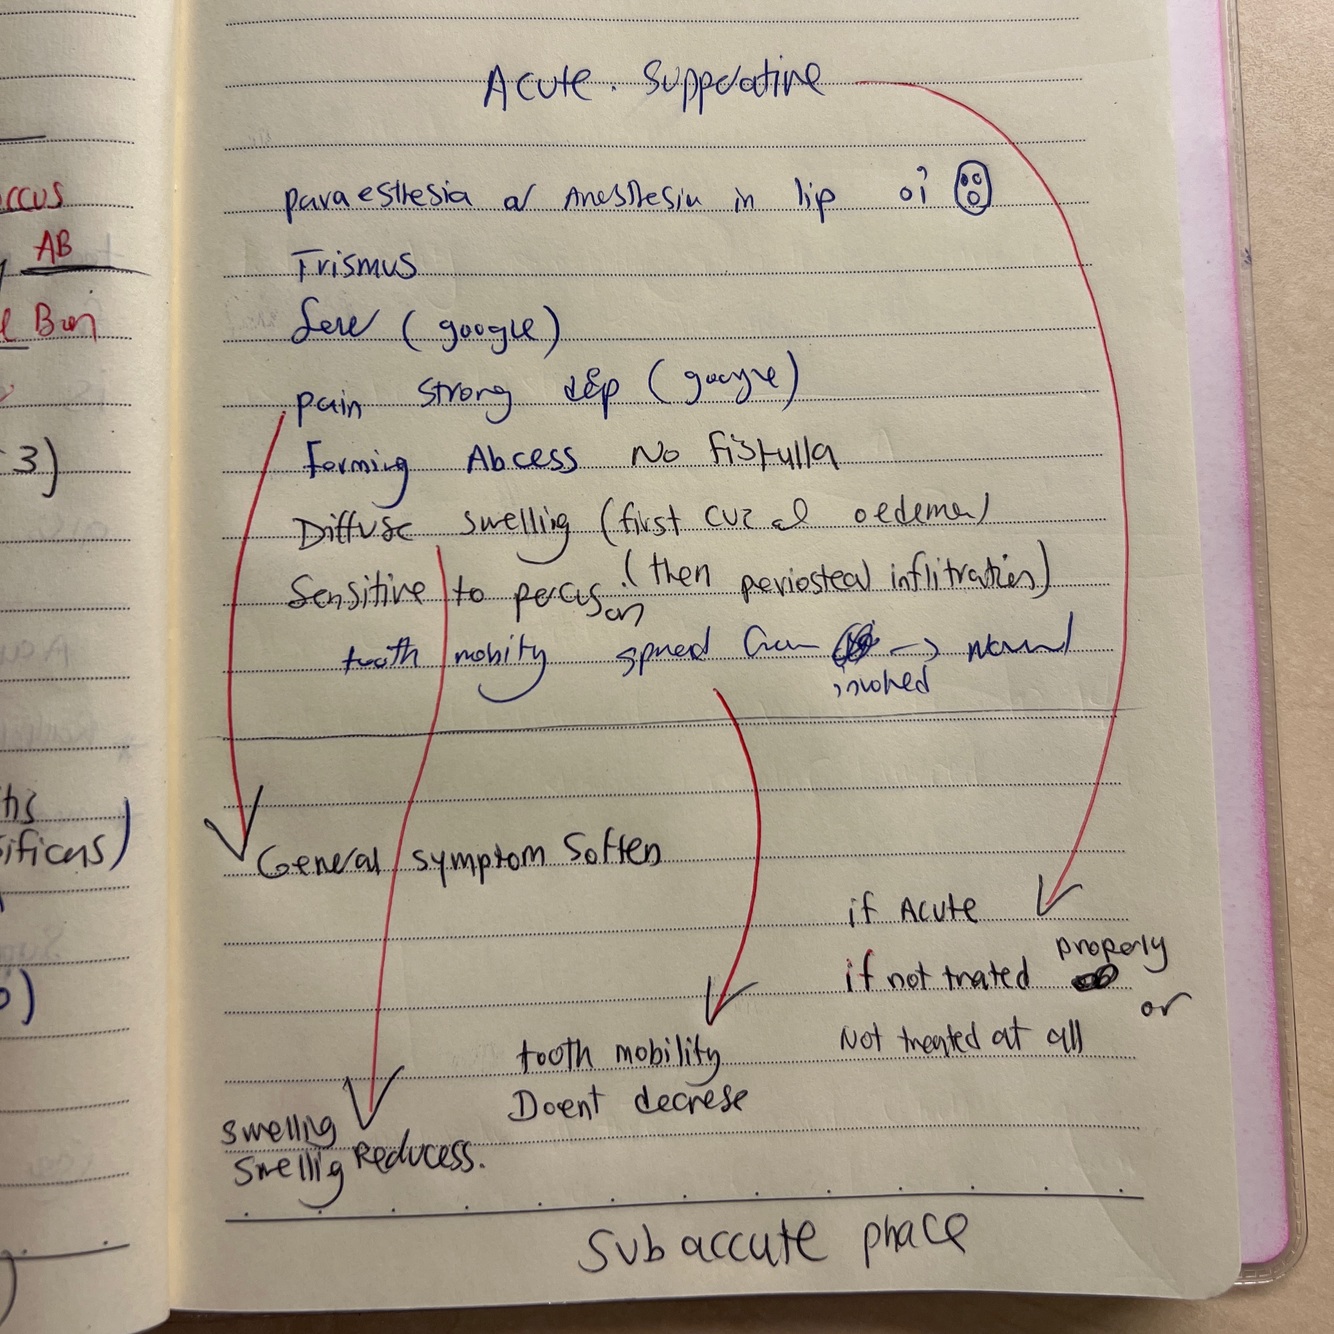 Acute. Suppurative
paraesthesia or Anesthesia in lip
Trismus
fever (google)
pain strong deep (google)
Forming Abcess No fistulla
Diffuse swelling (first oedema)
Sensitive to percusion (then periosteal inflitration)
tooth mobity spread from involved → Normal
General symptom Soften
if Acute
if not trated properly
or
Not treated at all
tooth mobility
Doent decrese
swelling
Swellig Reducess.
Sub accute phace
ccus
AB
3)
ificus)